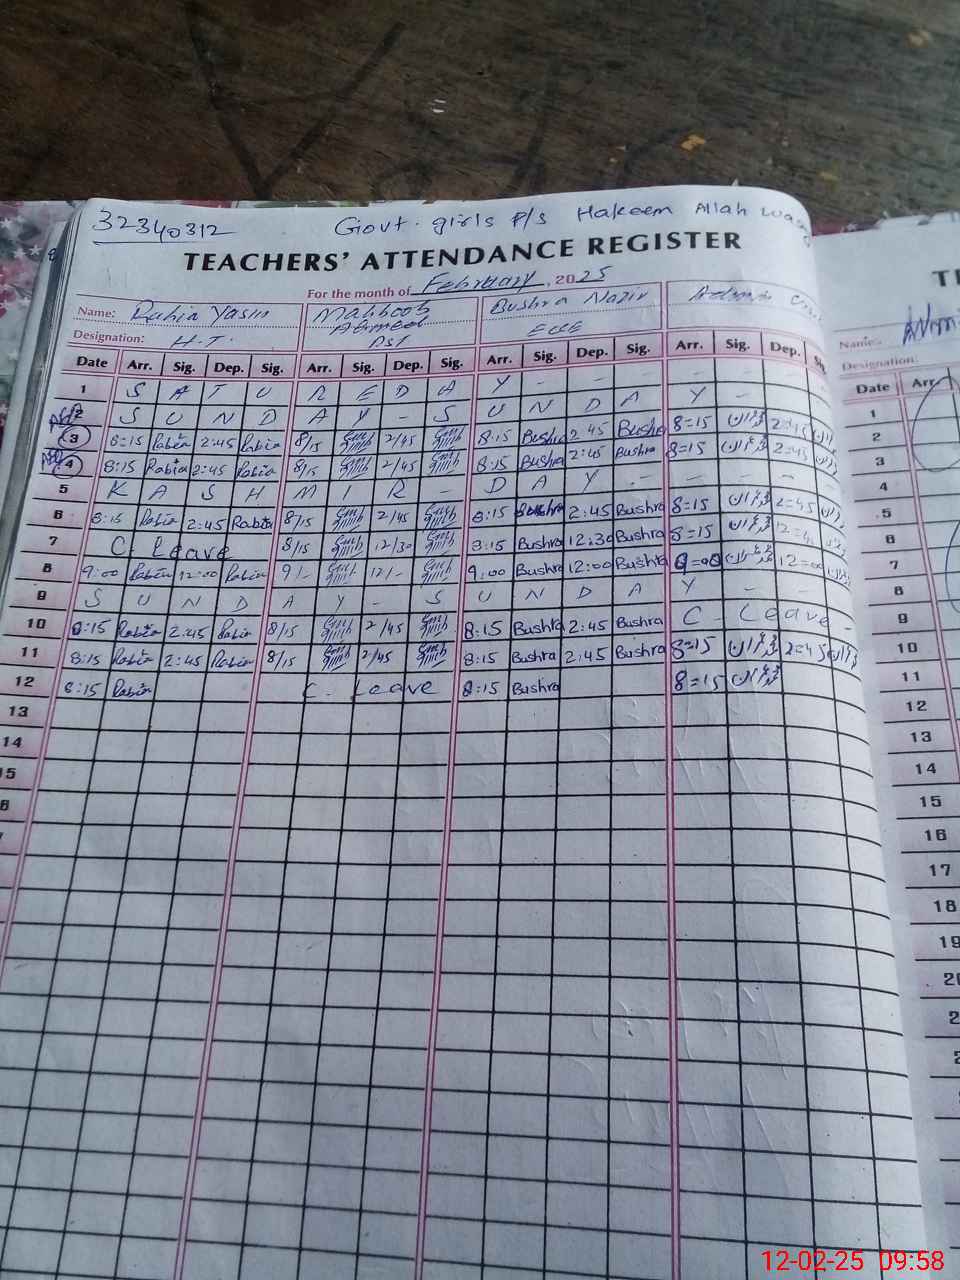 32340312 Govt. girls P/S Hakeem Allah
TEACHERS' ATTENDANCE REGISTER
For the month of February, 2025
Name: Rabia Yasin Mahboob Ahmeed Bushra Nazir
Designation: H.T. PST ECE
Date Arr. Sig. Dep. Sig. Arr. Sig. Dep. Sig. Arr. Sig. Dep. Sig. Arr. Sig. Dep.
1 S A T U R E D A Y - - - Y -
2 S U N D A Y - S U N D A Y
3 8:15 Rabia 2:45 Rabia 8/15 2/45 8:15 Bushra 2:45 Bushra 8=15 2=45
4 8:15 Rabia 2:45 Rabia 8/15 2/45 8:15 Bushra 2:45 Bushra 8=15 2=45
5 K A S H M I R - D A Y - - - -
6 8:15 Rabia 2:45 Rabia 8/15 2/45 8:15 Bushra 2:45 Bushra 8=15 2=45
7 C. Leave 8/15 12/30 8:15 Bushra 12:30 Bushra 8=15
8 9:00 Rabia 12:00 Rabia 9/- 12/- 9:00 Bushra 12:00 Bushra 12=00
9 S U N D A Y - S U N D A Y - -
10 8:15 Rabia 2:45 Rabia 8/15 2/45 8:15 Bushra 2:45 Bushra C - Leave -
11 8:15 Rabia 2:45 Rabia 8/15 2/45 8:15 Bushra 2:45 Bushra 8=15 2=45
12 8:15 Rabia C. Leave 8:15 Bushra 8=15
13
14
Name:
Designation:
Date Arr
1
2
3
4
5
6
7
8
9
10
11
12
13
14
15
16
17
18
12-02-25 09:58